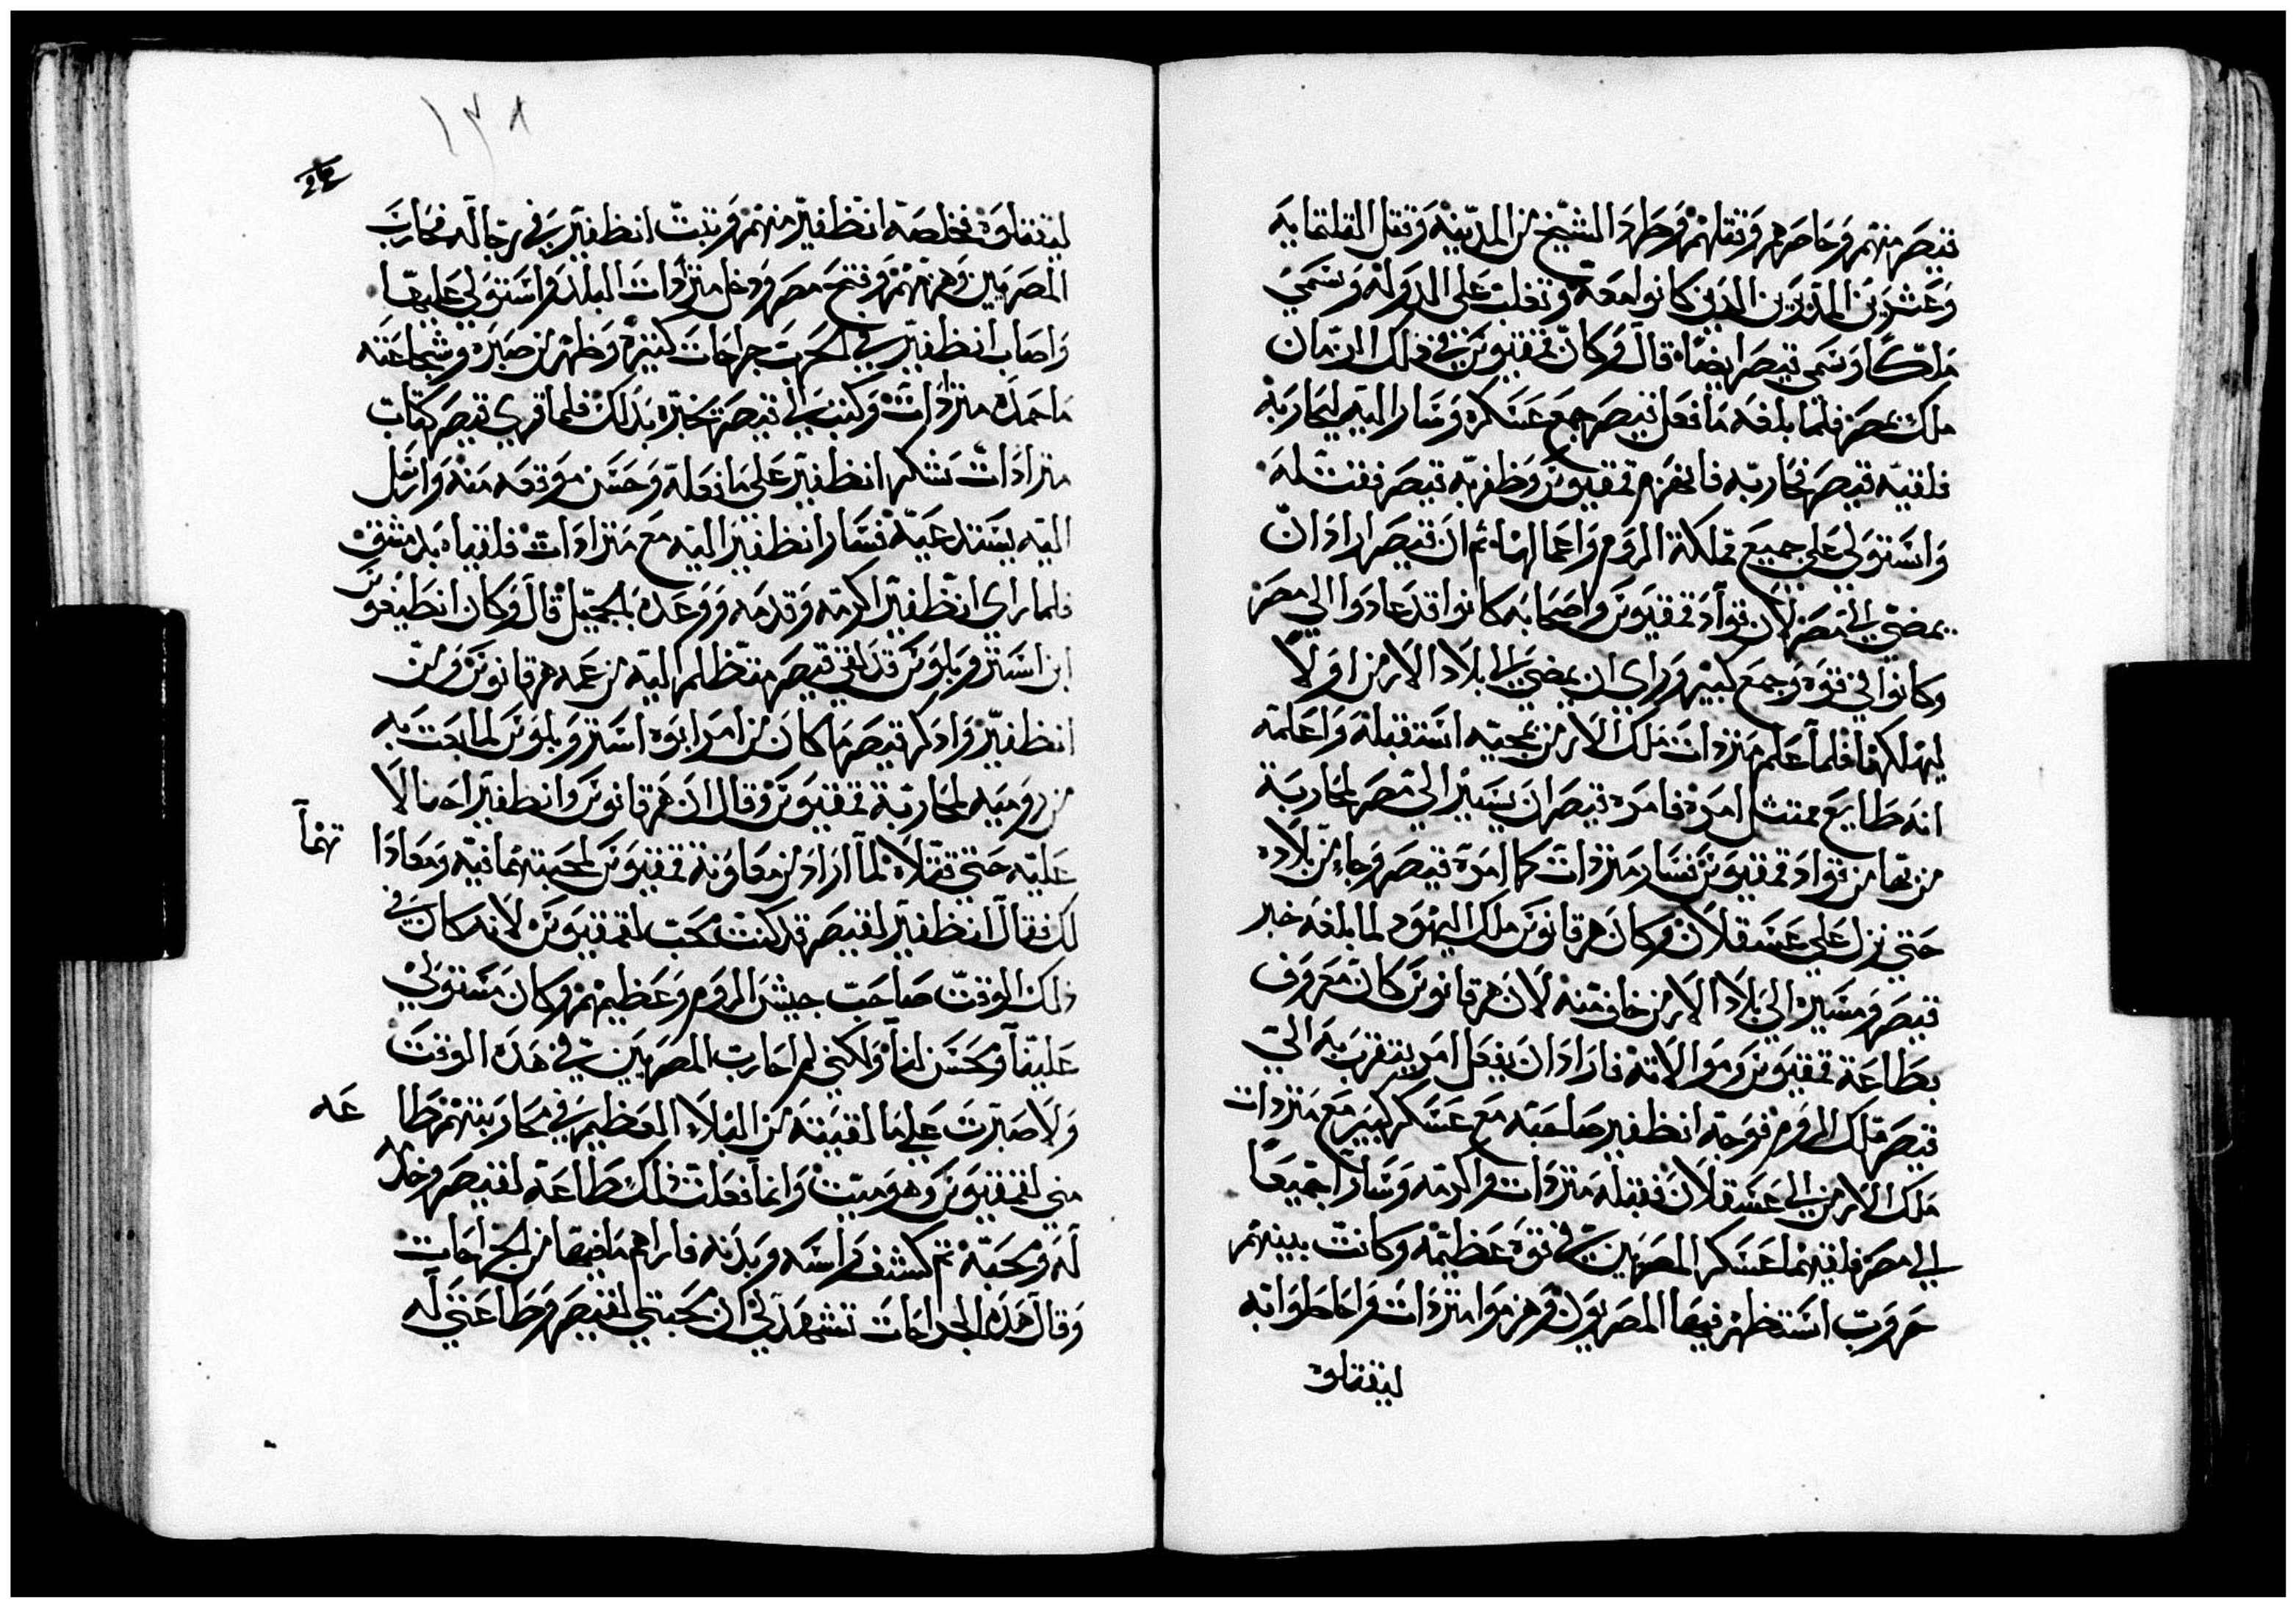 قيصر منهم وحاصرهم وقتلهم وطرد الشيخ من المدينة وقتل الثلثماية
وعشرين المدبرين الدين كانوا معه وتغلب على الدولة وسمي
ملكًا وسمي قيصر ايضًا قال وكان تمقيوس في دلك الزمان
ملك بمصر فلما بلغه ما فعل قيصر جمع عسكره وسار اليه ليحاربه
فلقيه قيصر فحاربه فانهزم تمقيوس وظفر به قيصر فقتله
واستولى على جميع مملكة الروم واعمالها ثم ان قيصر اراد ان
يمضي الى مصر لان قواد تمقيوس واصحابه كانوا قد عادوا الى مصر
وكانوا في قوة وجمع كبير وراي ان يمضي الى بلاد الارمن اولًا
ليهلكها فلما علم متردات ملك الارمن بمجيه استقبله واعلمه
انه طايع ممتثل امره فامره قيصر ان يسير الى مصر لمحاربة
من بها من قواد تمقيوس فسار متردات كما امره قيصر وجا من بلاده
حتي نزل على عسقلان وكان هرقانوس ملك اليهود لما بلغه خبر
قيصر ومسيره الى بلاد الارمن خاف منه لان هرقانوس كان معروف
بطاعة تمقيوس وموالاته فاراد ان يفعل امر يتقرب به الى
قيصر ملك الروم فوجه انظفير صاحبه مع عسكر كبير مع متردات
ملك الارمن الى عسقلان فقبله متردات واكرمه وسارا جميعًا
الى مصر فلقيهما عسكر المصريين في قوة عظيمه وكانت بينهم
حروب استظهر فيها المصريون وهزموا متردات واحاطوا به
ليقتلوه
١٣٨
ليقتلوه فخلصه انظفير منهم وثبت انظفير في رجاله فحارب
المصريين وهزمهم وفتح مصر ودخل متردات البلد واستولى عليها
واصاب انظفير في الحرب جراحات كثيره وظهر من صبره وشجاعته
ما حمده متردات وكتب الى قيصر يخبره بدلك فلما قري قيصر كتاب
متردات شكر انظفير على ما فعله وحسن موقعه منه وارسل
اليه يستدعيه فسار انظفير اليه مع متردات فلقياه بدمشق
فلما راي انظفير اكرمه وقدمه ووعده بالجميل قال وكان انطيغوس
ابن استروبلوس قد لقي قيصر متظلم اليه من عمه هرقانوس ومن
انظفير وادكر قيصر ما كان من امر ابوه استروبلوس لما بعث به
من روميه لمحاربة تمقيوس وقال ان هرقانوس وانظفير احتالا
عليه حتي قتلاه لما اراد من معاونة تمقيوس لمحبتهما فيه ومعاداتهما
لك فقال انظفير لقيصر قد كنت محب لتمقيوس لانه كان في
دلك الوقت صاحب جيش الروم وعظيمهم وكان مستولي
علينا ومحسن لنا ولكني لم احارب المصريين في هده الوقت
ولا صبرت على ما لقيته من البلاء العظيم في محاربتهم طاعه
مني لتمقيوس وهو ميت وانما فعلت دلك طاعة لقيصر وخدمة
له ومحبة ثم كشف راسه وبدنه فاراهم ما فيها من الجراحات
وقال هده الجراحات تشهد لي ان محبتي لقيصر وطاعتي له